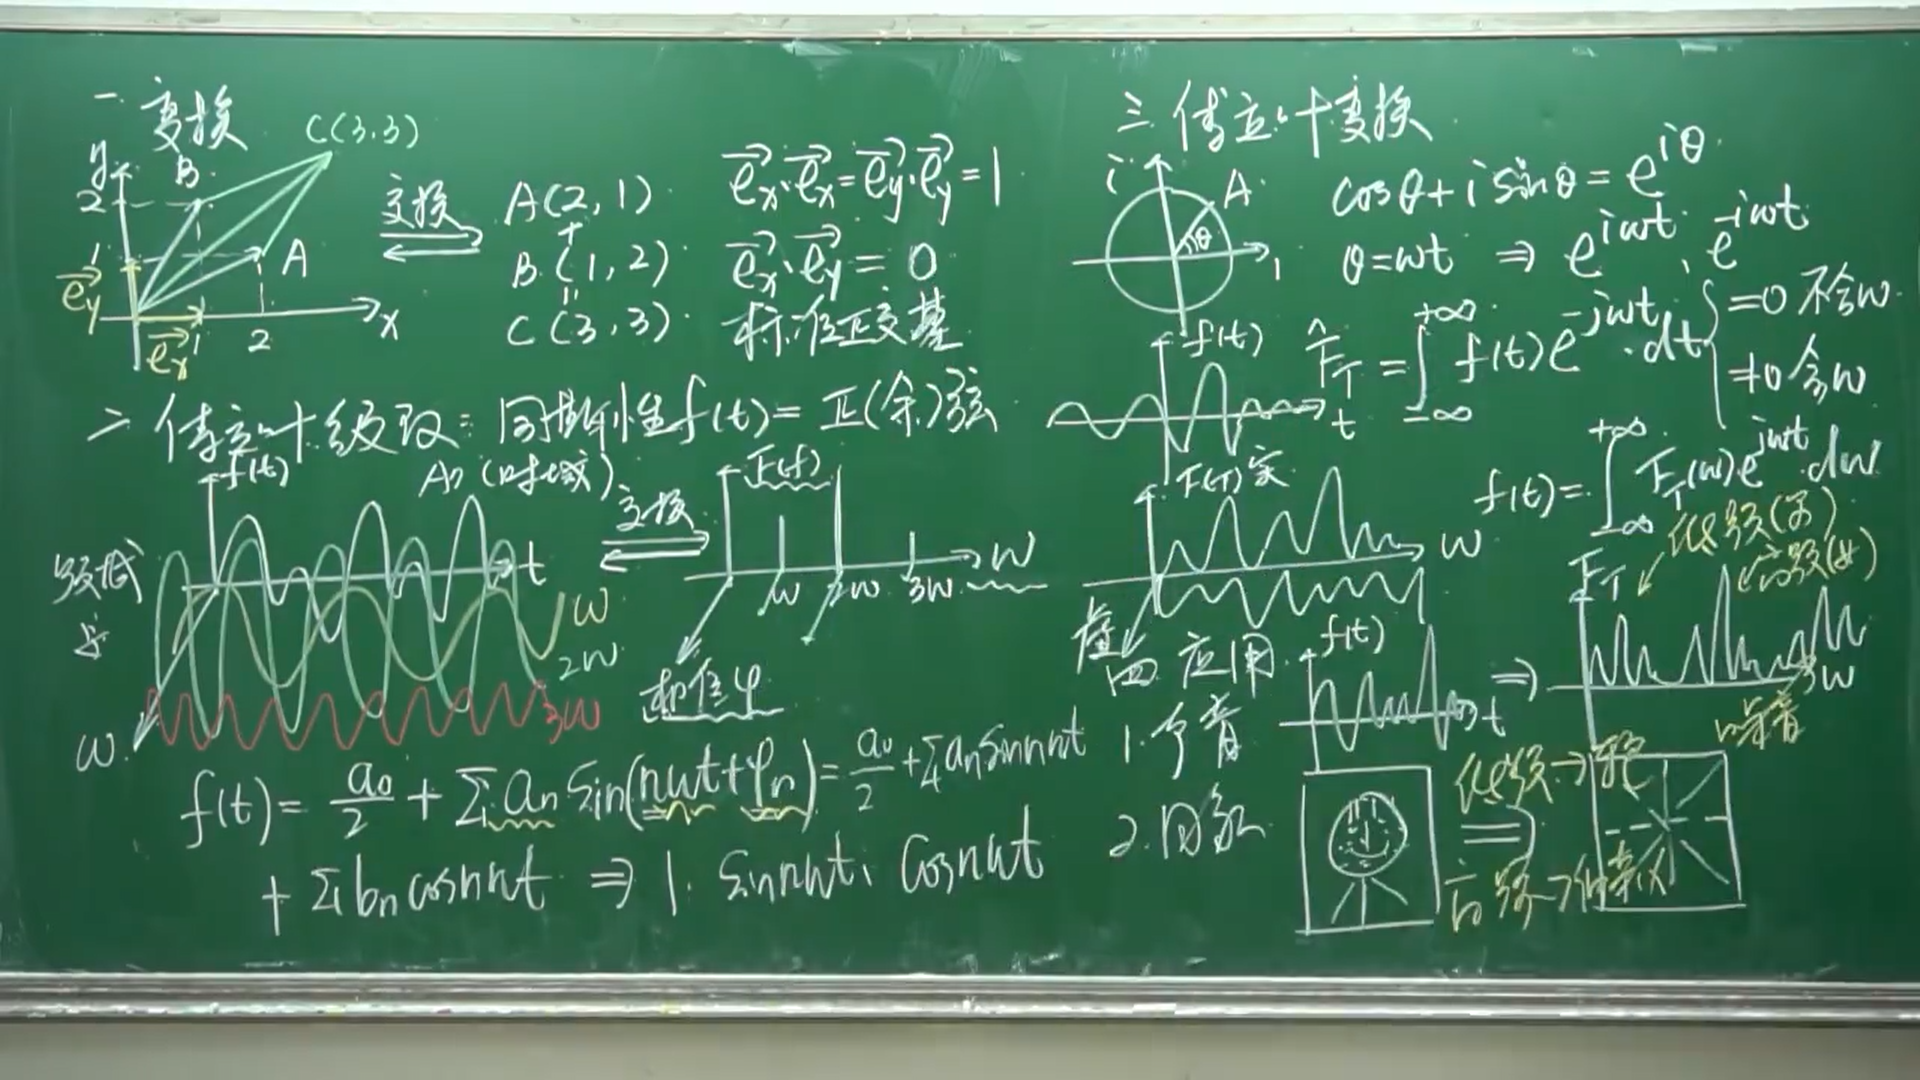 一. 变换
C(3.3)
y
B
2
1
A
e⃗y
e⃗x
1
2
x
变换
A(2, 1)
+
B(1, 2)
=
C(3, 3)
e⃗x·e⃗x=e⃗y·e⃗y=1
e⃗x·e⃗y=0
标准正交基
二 傅立叶级数: 周期性f(t)=正(余)弦
f(t)
An (时域)
t
ω
2ω
3ω
ω
变换
F(f)
ω
2ω
3ω
ω
相位φ
f(t)= a₀/2 + Σ an sin(nωt+φn)= a₀/2 +Σ an sinnωt
+ Σ bn cosnωt ⇒ 1. sinnωt、cosnωt
三. 傅立叶变换
i
A
θ
1
cosθ+i sinθ=e^{iθ}
θ=ωt ⇒ e^{iωt}、e^{-iωt}
f(t)
t
F̂_T=∫_{-∞}^{+∞} f(t)e^{-jωt}·dt { =0 不含ω
≠0 含ω
F(T)实
ω
虚
f(t)=∫_{-∞}^{+∞} F_T(ω)e^{jωt}·dω
四 应用
1. 声音
f(t)
t
⇒
F_T
低频(男)
高频(女)
ω
噪音
2. 图象
低频→轮廓
高频→细节